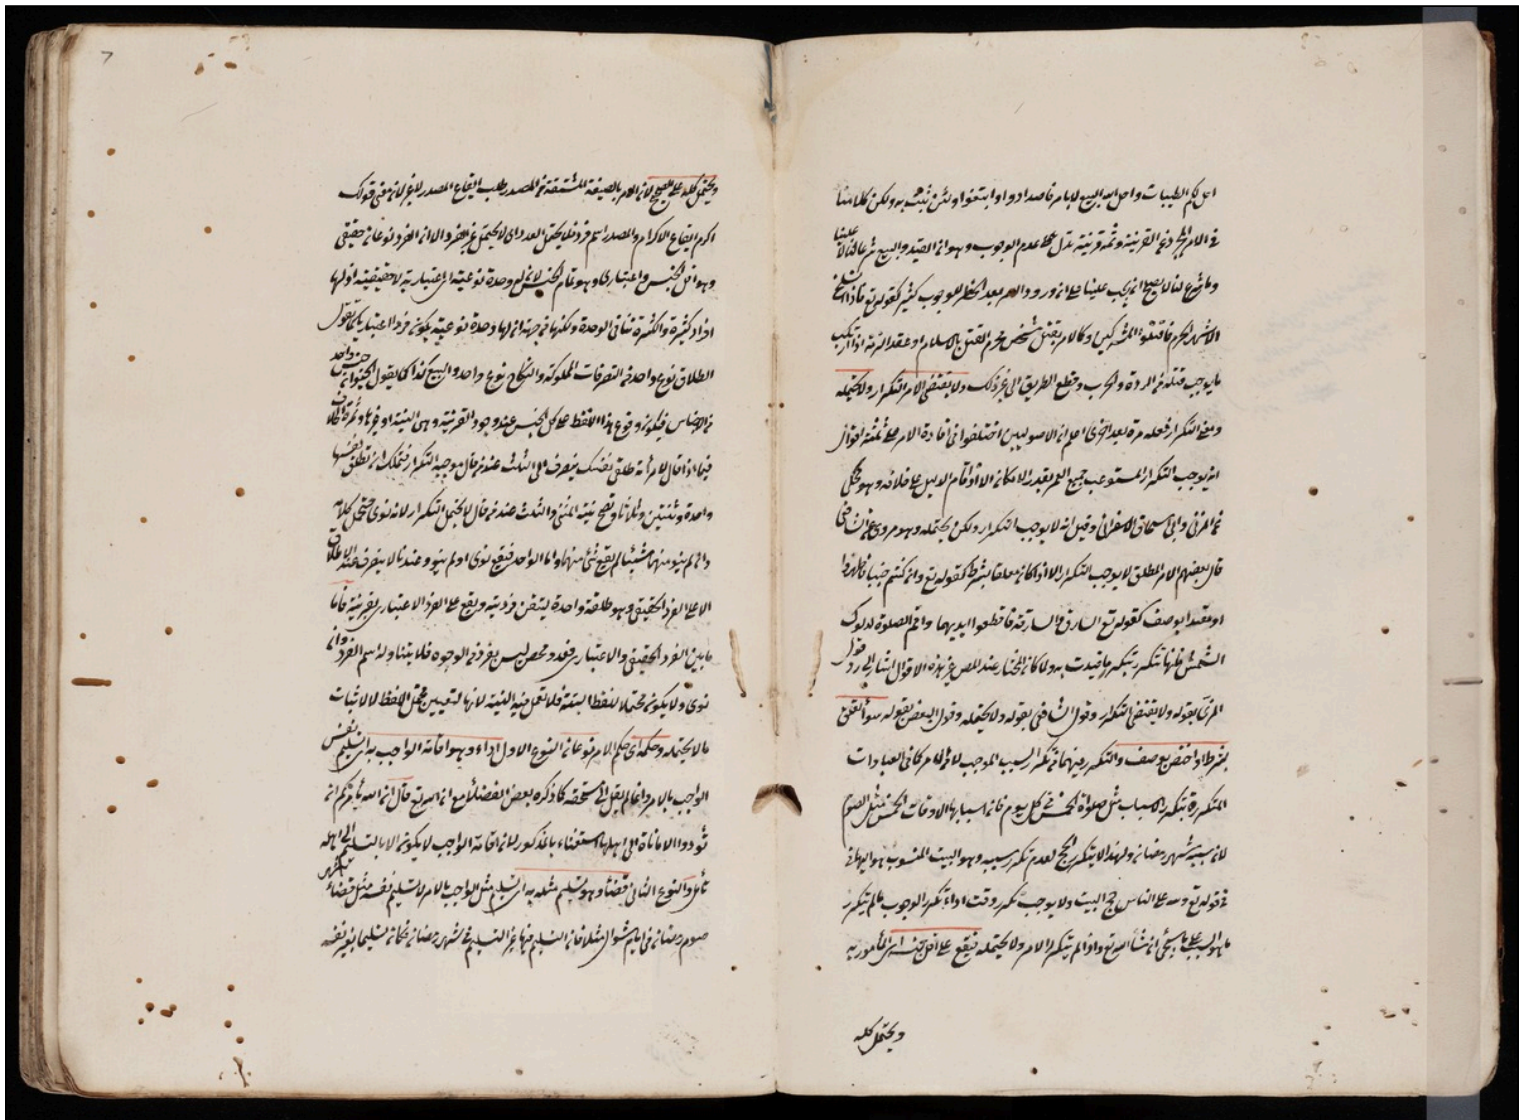 احل لكم الطيبات واحل الله البيع لا بامر فاصطادوا وابتغوا ولئن ثبت به ولكن كلامنا
في الامر المجرد عن القرينة وثمه قرينة تدل على عدم الوجوب وهو ان الصيد والبيع شرعا لنا لا علينا
وما شرع لنا لا يصح ان يجب علينا على ان ورود الامر بعد الحظر للوجوب كثير كقوله تع فاذا انسلخ
الاشهر الحرم فاقتلوا المشركين وكالامر بقتل شخص محرم القتل بالاسلام او عقد الذمة اذا ارتكب
ما يوجب قتله من الردة والحرب وقطع الطريق الى غير ذلك ولا يقتضى الامر التكرار ولا يحتمله
ومعنى التكرار فعله مرة بعد اخرى اعلم ان الاصوليين اختلفوا في افادة الامر على ثلثة اقوال
انه يوجب التكرار المستوعب جميع العمر بقدر الامكان الا اذا قام الدليل على خلافه وهو محكى
عن المزنى وابى اسحاق الاسفرانى وقيل انه لا يوجب التكرار ولكن يحتمله وهو مروى عن الشافعى
قال بعضهم الامر المطلق لا يوجب التكرار الا اذا كان معلقا بشرط كقوله تع وان كنتم جنبا فاطهروا
او مقيدا بوصف كقوله تع السارق والسارقة فاقطعوا ايديهما واقم الصلوة لدلوك
الشمس فانها تتكرر بتكرر ما قيدت به ولما كان المختار عند المص غير هذه الاقوال اشار الى رد قول
المزنى بقوله ولا يقتضى التكرار وقول الشافعى بقوله ولا يحتمله وقول البعض بقوله سواء تعلق
بشرط او اختص بوصف والتكرر فيهما من تكرار السبب الموجب لا من الامر كما في العبادات
المتكررة بتكرر الاسباب مثل صلوة الخمس في كل يوم فان اسبابها الاوقات الخمس مثل الصوم
لان سببه شهر رمضان ولهذا لا يتكرر الحج لعدم تكرر سببه وهو البيت المنسوب هو اليه
في قوله تع ولله على الناس حج البيت ولا يوجب تكرر وقت اداءه تكرر الوجوب ما لم يتكرر
ما هو السبب على ما يجئ ان شأ الله تع واذا لم يتكرر الامر ولا يحتمله فيقع على اقل جنسه اى المأمور به
ويحتمل كله
٧
ويحتمل كله على الصحيح لان الامر بالصيغة المشتقة من المصدر طلب ايقاع المصدر للغير لان معنى قولك
اكرم ايقاع الاكرام والمصدر اسم فرد فلا يحتمل العدد اى لا يحتمل غير الفرد الا ان الفرد نوعان حقيقى
وهو اقل الجنس واعتبارى وهو تمام الجنس لان له وحدة نوعية اى اعتبارية لا حقيقية اذ لها
افراد كثيرة والكثرة تنافى الوحدة ولكنها من جهة ان لها وحدة نوعية يكون فردا اعتباريا كما تقول
الطلاق نوع واحد من التصرفات المملوكة والنكاح نوع واحد والبيع كذا كما يقول الحيوان جنس واحد
من الاجناس فيكون وقوع هذا اللفظ على كل الجنس عند وجود القرينة وهى النية او غيرها وثمرة الخلاف
فيما اذا قال لامرأته طلقى نفسك ينصرف الى الثلث عند من قال بموجبه التكرار فتملك ان تطلق نفسها
واحدة وثنتين وثلاثا وتصح نية المثنى والثلث عند من قال لا يحتمل التكرار لانه نوى محتمل كلامه
وان لم ينو منهما شيئا لم يقع شئ منهما واما الواحد فيقع نوى او لم ينو وعندنا لا ينصرف عند الاطلاق
الا على الفرد الحقيقى وهو طلقة واحدة ليتقن فرديته ويقع على الفرد الاعتبارى بقرينية فاما
ما بين الفرد الحقيقى والاعتبارى فعدد محض ليس بفرد من الوجوه فلا يتناوله اسم الفرد وان
نوى ولا يكون محتملا للفظ البتة فلا تعمل فيه النية لانها لتعيين محتمل اللفظ لا لاثبات
ما لا يحتمله وحكمه اى حكم الامر نوعان النوع الاول اداء وهو اقامة الواجب به اى تسليم نفس
الواجب بالامر وانما لم يقل الى مستحقه كما ذكره بعض الفضلاء مع ان الله تع قال ان الله يأمركم ان
تؤدوا الامانات الى اهلها استغناء بالمذكور لان اقامة الواجب لا يكون الا بالتسليم الى اهله
تأمل والنوع الثانى قضاء وهو تسليم مثله به اى تسليم مثل الواجب بالامر لا تسليم نفسه مثل قضاء
صوم رمضان في ايام شوال مثلا فان التسليم فيها غير التسليم في شهر رمضان فكان تسليما بغير نفسه